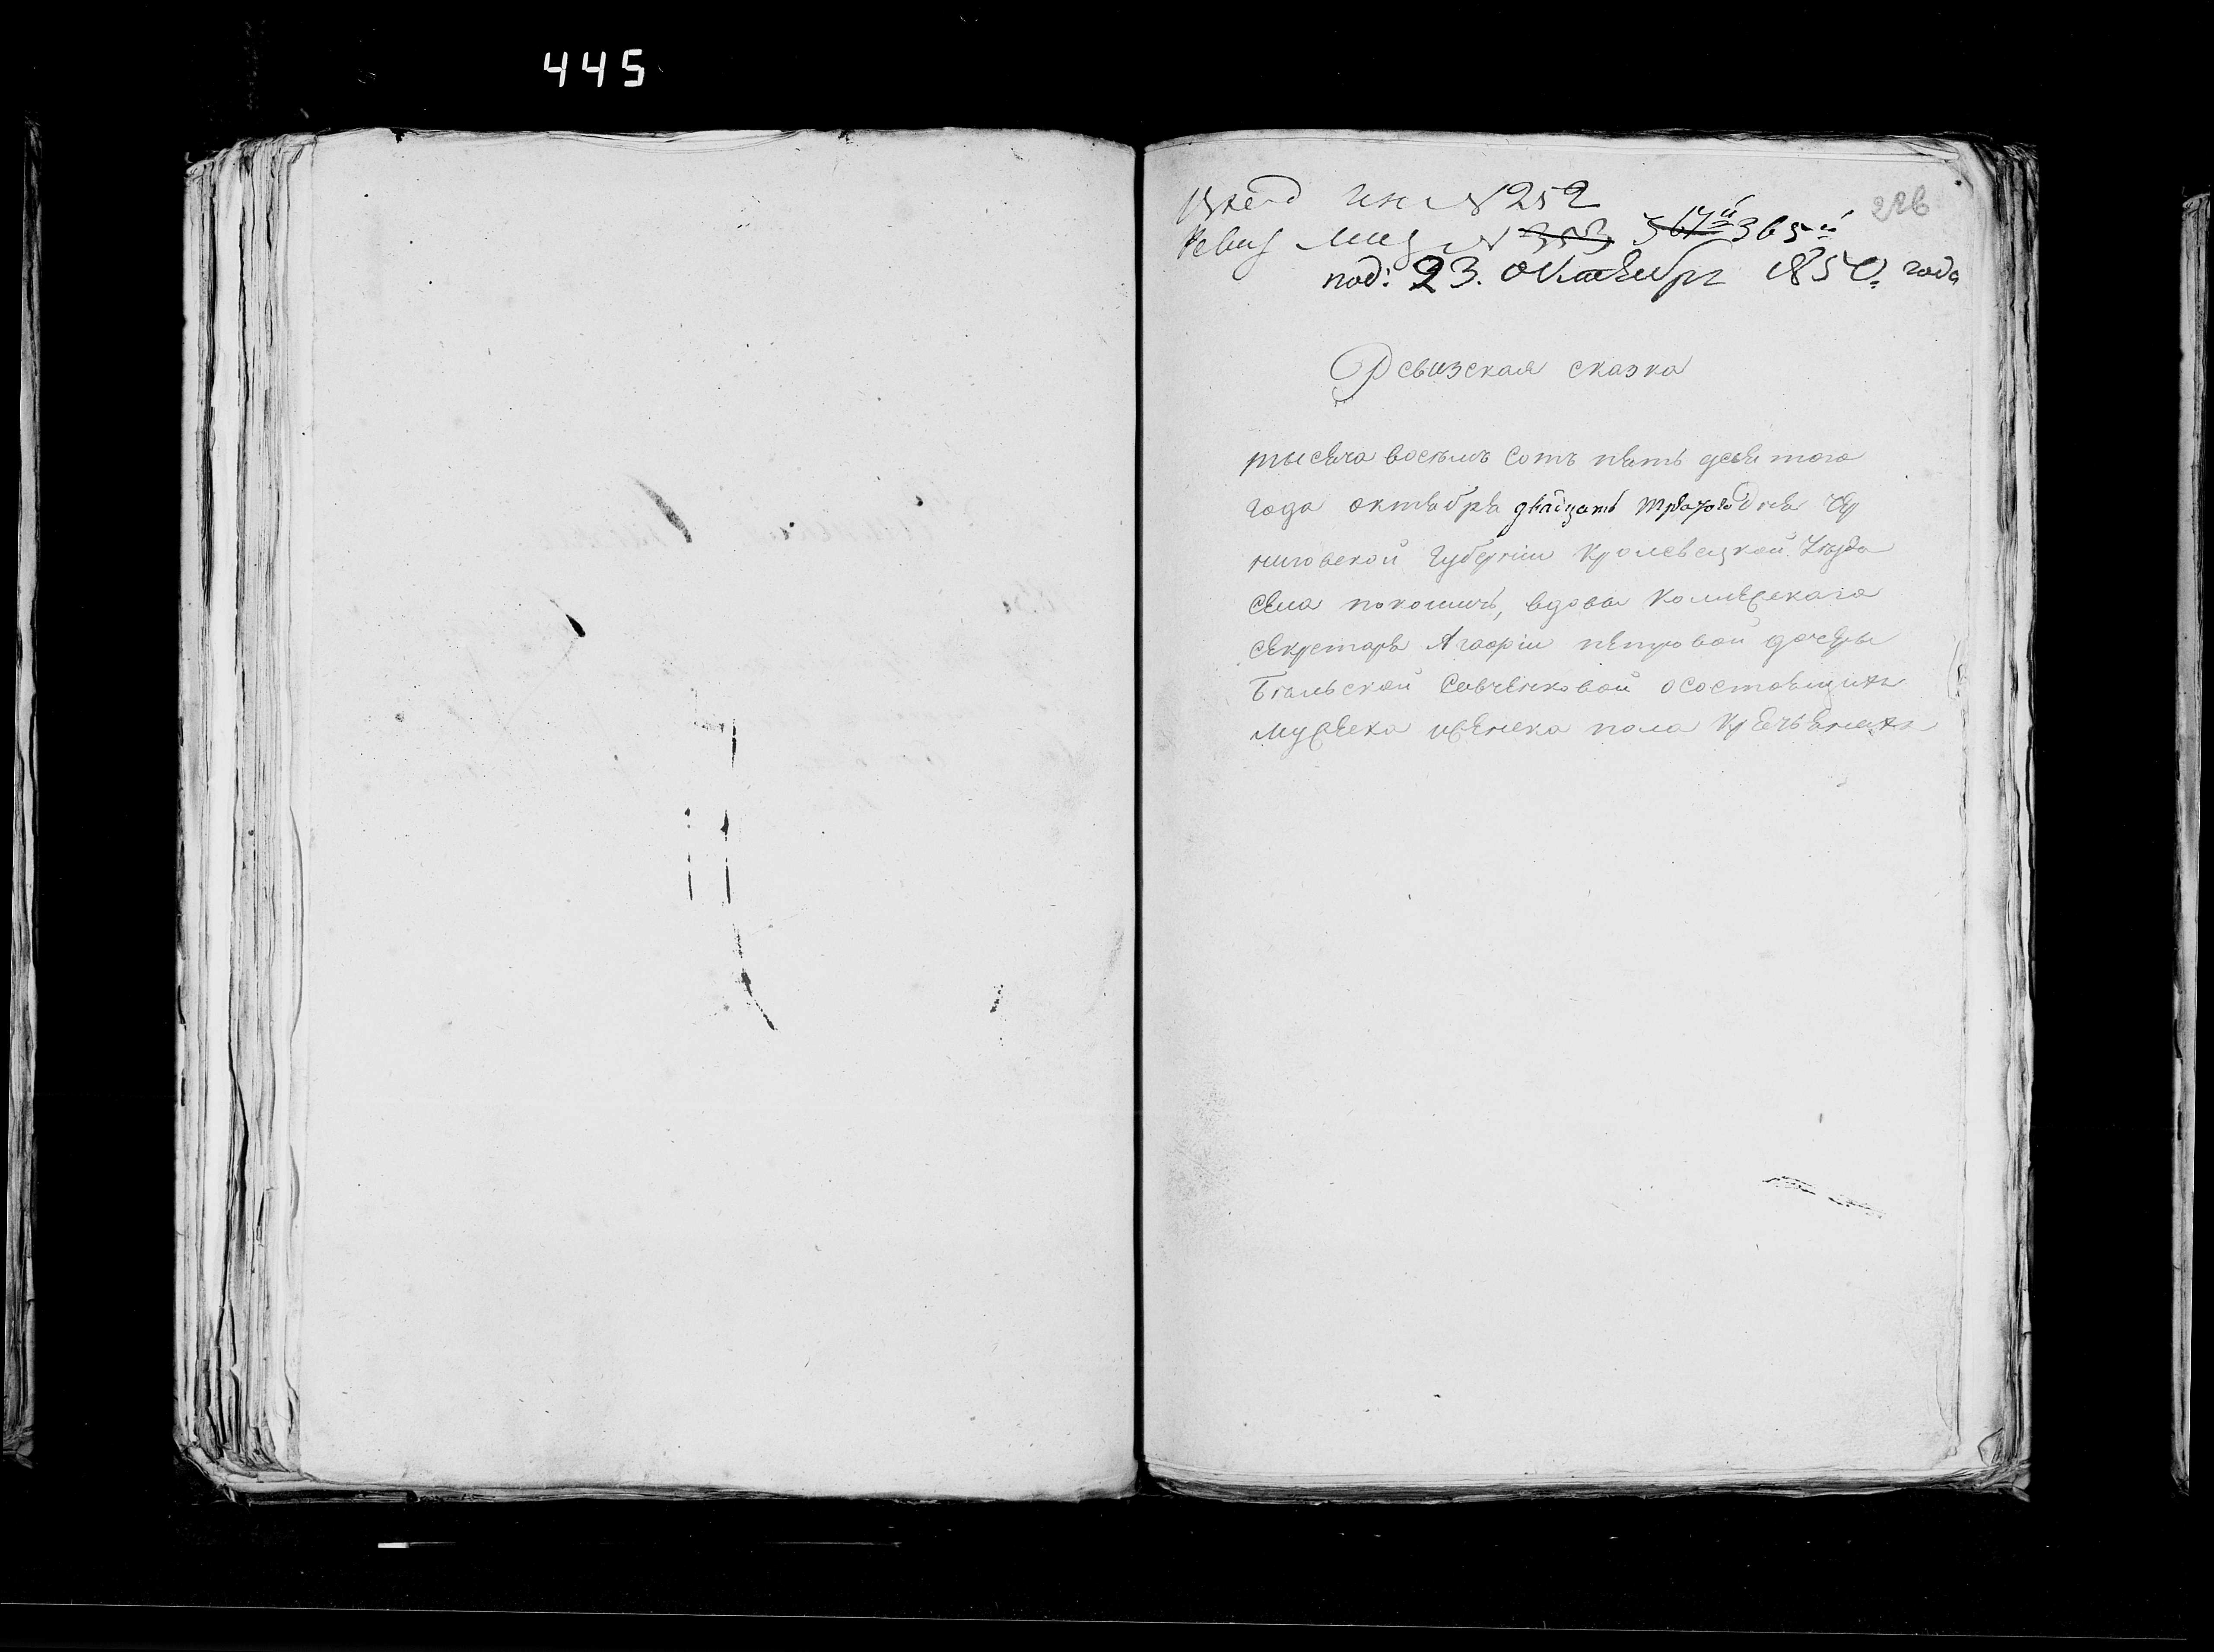 445
226
№ 252
Ревиз № 353 367й 365й
под: 23. Октября 1850. года
Ревизская сказка
тысяча восемъ сотъ пять десятого
года октября двадцать третього дня Чер
ниговской Губернии Кролевецкой уезда
села покошичь, вдовы Колежскаго
секретаря Агафіи петровой дочеры
Бельской Савченковой осостоящихъ
мужеска иженска пола крестьянахъ